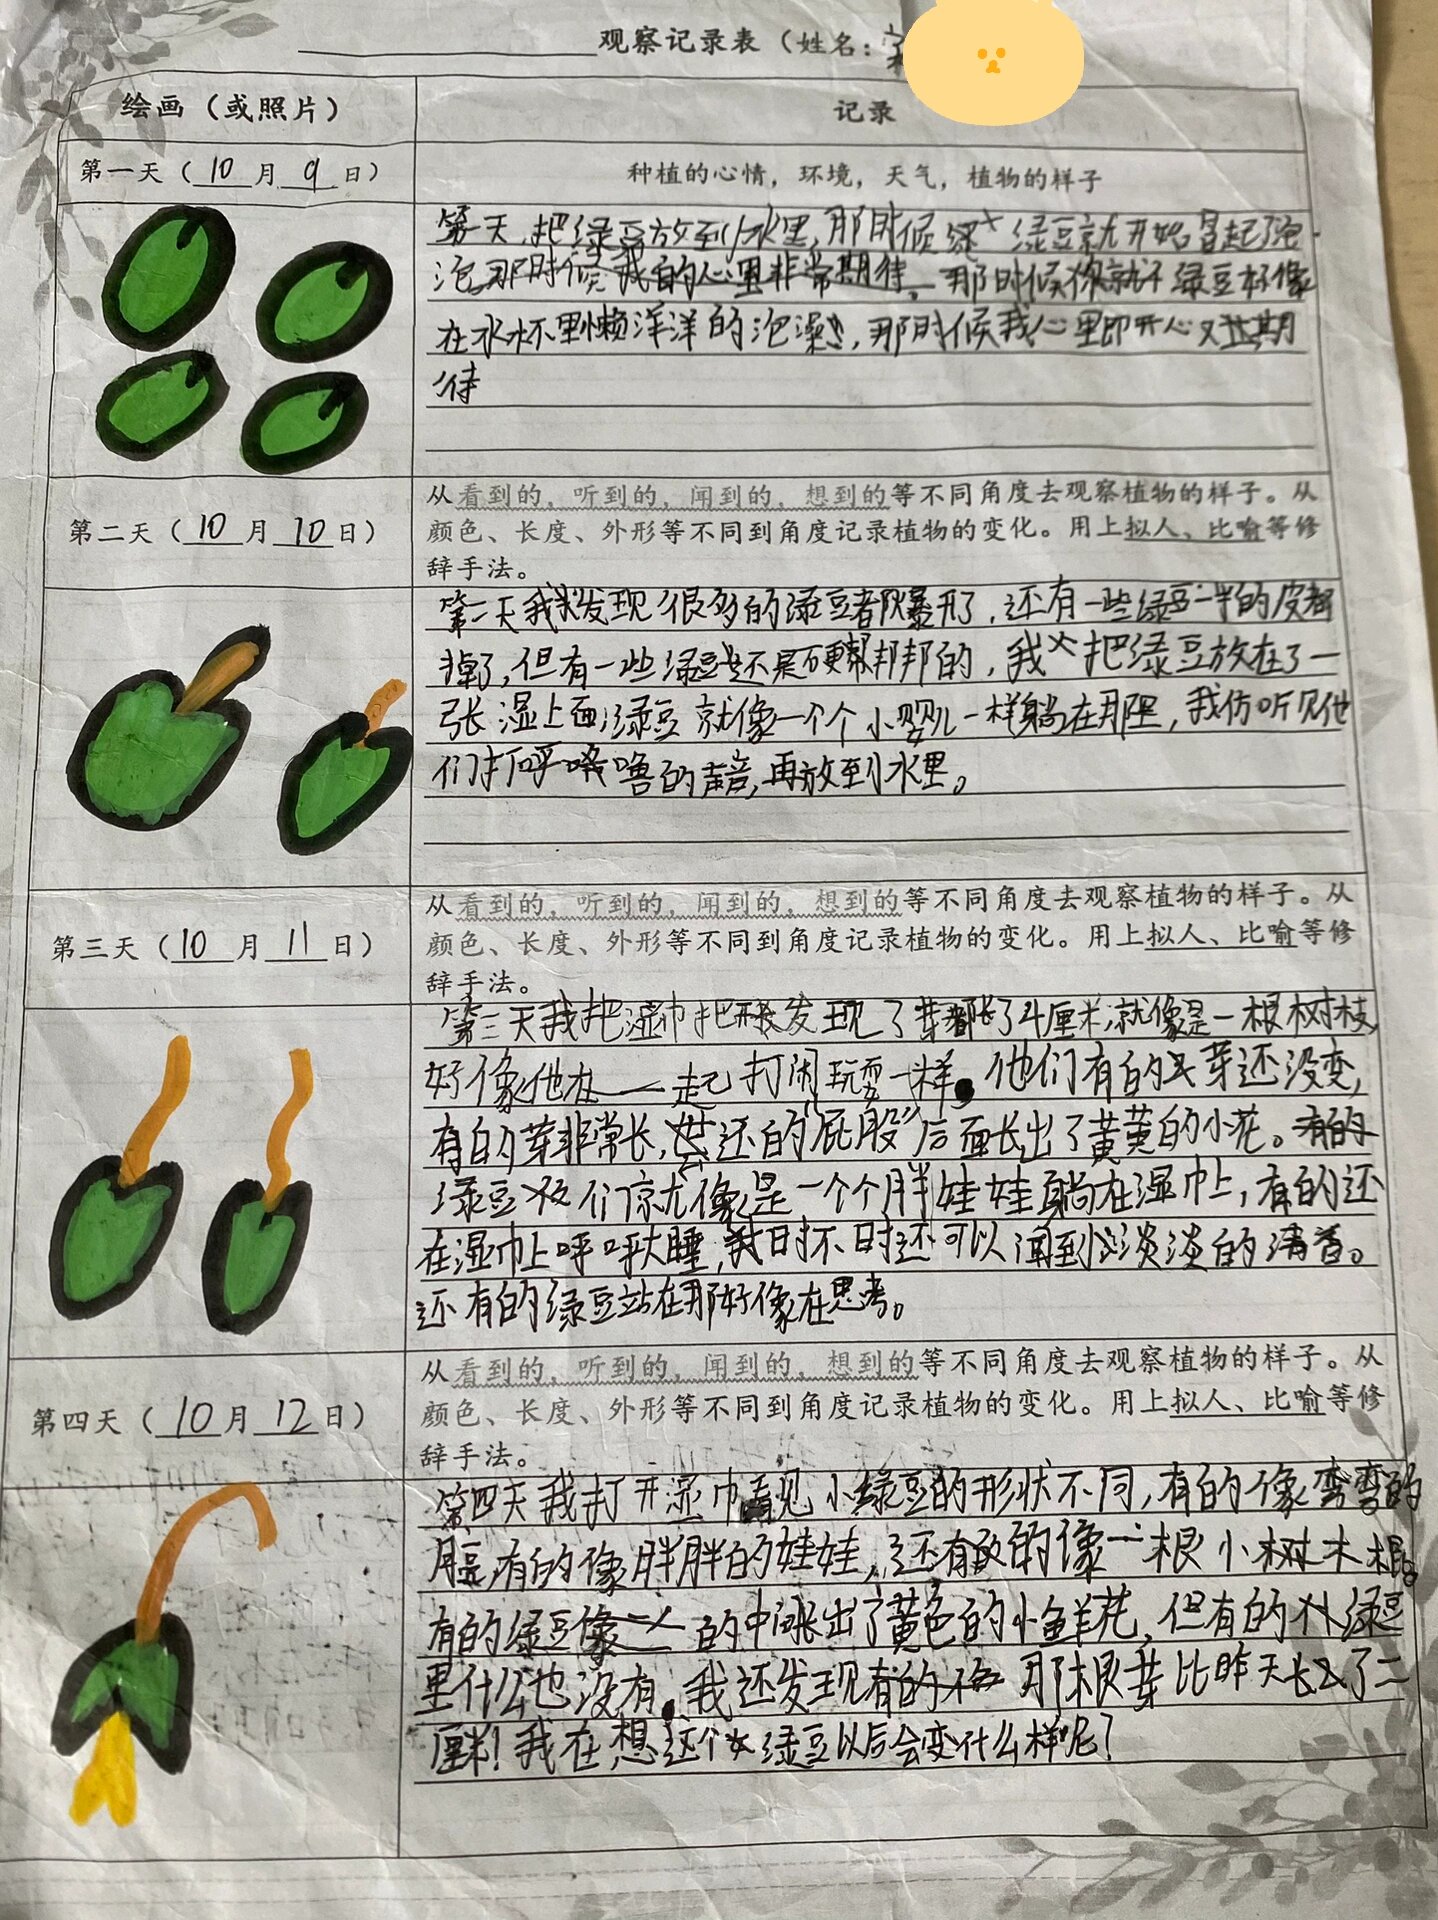 观察记录表（姓名：
绘画（或照片）
记录
第一天（10月9日）
种植的心情，环境，天气，植物的样子
第一天，把绿豆放到水里，那时候 绿豆就开始冒起了泡
泡，那时候我的心里非常期待。那时候 绿豆好像
在水杯里懒洋洋的泡澡，那时候我心里即开心又 期
待
第二天（10月10日）
从看到的，听到的，闻到的，想到的等不同角度去观察植物的样子。从
颜色、长度、外形等不同到角度记录植物的变化。用上拟人、比喻等修
辞手法。
第二天我发现很多的绿豆都爆开了，还有一些绿豆一半的皮都
掉了，但有一些绿豆还是硬邦邦的，我把绿豆放在了一
张湿上面，绿豆就像一个个小婴儿一样躺在那里，我仿听见他
们打呼噜的声音，再放到水里。
第三天（10月11日）
从看到的，听到的，闻到的，想到的等不同角度去观察植物的样子。从
颜色、长度、外形等不同到角度记录植物的变化。用上拟人、比喻等修
辞手法。
第三天我把湿巾 发现了芽都长了4厘米，就像是一根树枝
好像他在一起打闹玩耍一样。他们有的芽还没变，
有的芽非常长， 还的“屁股”后面长出了黄黄的小花。有的
绿豆 们京尤像是一个个胖娃娃躺在湿巾上，有的还
在湿巾上呼呼大睡，我时不时还可以闻到淡淡的清香。
还有的绿豆站在那好像在思考。
第四天（10月12日）
从看到的，听到的，闻到的，想到的等不同角度去观察植物的样子。从
颜色、长度、外形等不同到角度记录植物的变化。用上拟人、比喻等修
辞手法。
第四天我打开湿巾看见小绿豆的形状不同，有的像弯弯的
有的像胖胖的娃娃，还有的像一根小树木棍。
有的绿豆 的中间长出了黄色的小鲜花，但有的绿豆
里什么也没有，我还发现有的 那根芽比昨天长了二
厘米！我在想这个绿豆以后会变什么样呢？